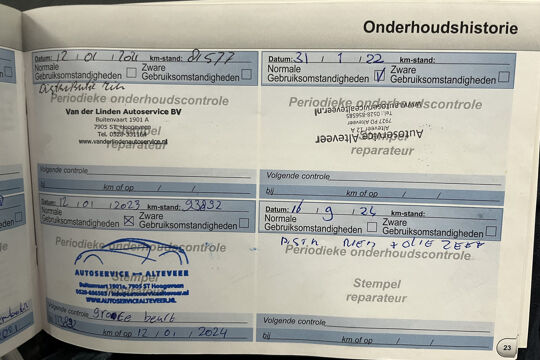 Onderhoudshistorie
Datum: 12 / 01 / 2021 km-stand: 81577
Normale Gebruiksomstandigheden Zware Gebruiksomstandigheden
Periodieke onderhoudscontrole
Van der Linden Autoservice BV
Buitenvaart 1901 A
7905 ST Hoogeveen
Tel. 0528-331168
www.vanderlindenautoservice.nl
Stempel
reparateur
Volgende controle
bij km of op / /
Datum: 31 / 1 / 22 km-stand:
Normale Gebruiksomstandigheden Zware Gebruiksomstandigheden
Periodieke onderhoudscontrole
Autoservice Alteveer
Alteveer 12 A
7927 PD Alteveer
Tel.: 0528-856585
www.autoservicealteveer.nl
Stempel
reparateur
Volgende controle
bij km of op / /
Datum: 12 / 01 / 2023 km-stand: 93892
Normale Gebruiksomstandigheden Zware Gebruiksomstandigheden
Periodieke onderhoudscontrole
AUTOSERVICE ALTEVEER
Buitenvaart 1901a, 7905 ST Hoogeveen
0528-856585 / info@autoservicealteveer.nl
WWW.AUTOSERVICEALTEVEER.NL
Stempel
reparateur
Volgende controle grote beurt
km of op 12 / 01 / 2024
Datum: 16 / 9 / 24 km-stand:
Normale Gebruiksomstandigheden Zware Gebruiksomstandigheden
DISTR RIEM + OLIE ZEEF
Periodieke onderhoudscontrole
Stempel
reparateur
Volgende controle
bij km of op / /
23